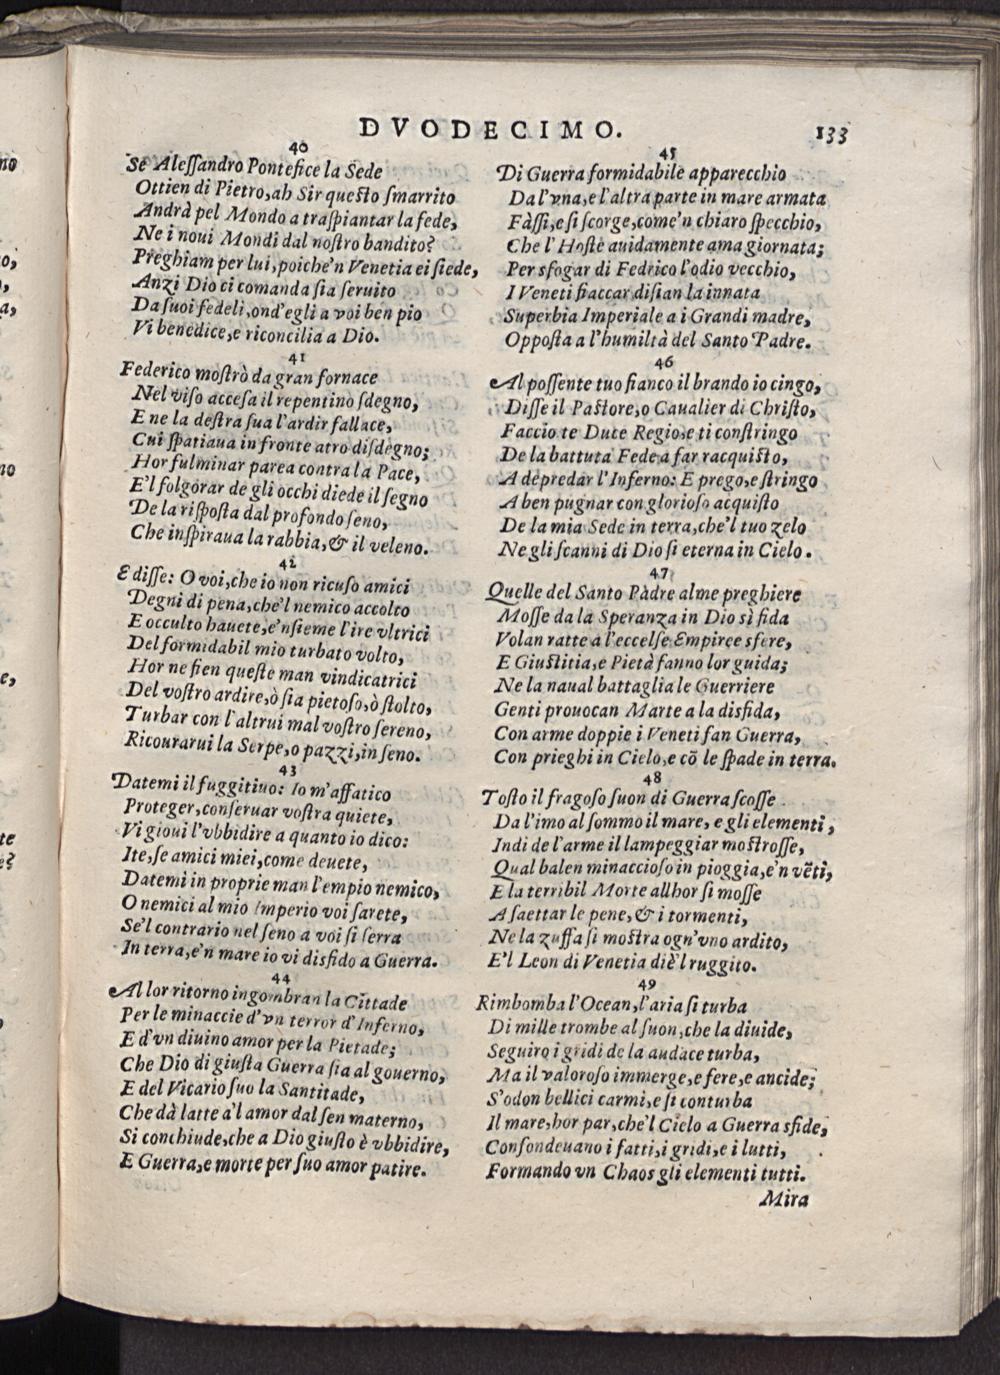 DVODECIMO. 133
40
Se Alessandro Pontefice la Sede
Ottien di Pietro, ah Sir questo smarrito
Andrà pel Mondo a traspiantar la fede,
Ne i noui Mondi dal nostro bandito?
Preghiam per lui, poiche'n Venetia ei siede,
Anzi Dio ci comanda sia seruito
Da suoi fedeli, ond'egli a voi ben pio
Vi benedice, e riconcilia a Dio.
41
Federico mostrò da gran fornace
Nel viso accesa il repentino sdegno,
E ne la destra sua l'ardir fallace,
Cui spatiaua in fronte atro disdegno;
Hor fulminar parea contra la Pace,
E'l folgorar de gli occhi diede il segno
De la risposta dal profondo seno,
Che inspiraua la rabbia, & il veleno.
42
E disse: O voi, che io non ricuso amici
Degni di pena, che'l nemico accolto
E occulto hauete, e'nsieme l'ire vltrici
Del formidabil mio turbato volto,
Hor ne fien queste man vindicatrici
Del vostro ardire, ò sia pietoso, ò stolto,
Turbar con l'altrui mal vostro sereno,
Ricourarui la Serpe, o pazzi, in seno.
43
Datemi il fuggitiuo: Io m'affatico
Proteger, conseruar vostra quiete,
Vi gioui l'vbbidire a quanto io dico:
Ite, se amici miei, come deuete,
Datemi in proprie man l'empio nemico,
O nemici al mio Imperio voi sarete,
Se'l contrario nel seno a voi si serra
In terra, e'n mare io vi disfido a Guerra.
44
Al lor ritorno ingombran la Cittade
Per le minaccie d'vn terror d'Inferno,
E d'vn diuino amor per la Pietade;
Che Dio di giusta Guerra sia al gouerno,
E del Vicario suo la Santitade,
Che dà latte a'l amor dal sen materno,
Si conchiude, che a Dio giusto è vbbidire,
E Guerra, e morte per suo amor patire.
45
Di Guerra formidabile apparecchio
Da l'vna, e l'altra parte in mare armata
Fàssi, e si scorge, come'n chiaro specchio,
Che l'Hoste auidamente ama giornata;
Per sfogar di Fedrico l'odio vecchio,
I Veneti fiaccar disian la innata
Superbia Imperiale a i Grandi madre,
Opposta a l'humiltà del Santo Padre.
46
Al possente tuo fianco il brando io cingo,
Disse il Pastore, o Caualier di Christo,
Faccio te Duce Regio, e ti constringo
De la battuta Fede a far racquisto,
A depredar l'Inferno: E prego, e stringo
A ben pugnar con glorioso acquisto
De la mia Sede in terra, che'l tuo zelo
Ne gli scanni di Dio si eterna in Cielo.
47
Quelle del Santo Pàdre alme preghiere
Mosse da la Speranza in Dio sì fida
Volan ratte a l'eccelse Empiree sfere,
E Giustitia, e Pietà fanno lor guida;
Ne la naual battaglia le Guerriere
Genti prouocan Marte a la disfida,
Con arme doppie i Veneti fan Guerra,
Con prieghi in Cielo, e cõ le spade in terra.
48
Tosto il fragoso suon di Guerra scosse
Da l'imo al sommo il mare, e gli elementi,
Indi de l'arme il lampeggiar mostrosse,
Qual balen minaccioso in pioggia, e'n vẽti,
E la terribil Morte allhor si mosse
A saettar le pene, & i tormenti,
Ne la zuffa si mostra ogn'vno ardito,
E'l Leon di Venetia diè'l ruggito.
49
Rimbomba l'Ocean, l'aria si turba
Di mille trombe al suon, che la diuide,
Seguiro i gridi de la audace turba,
Ma il valoroso immerge, e fere, e ancide;
S'odon bellici carmi, e si conturba
Il mare, hor par, che'l Cielo a Guerra sfide,
Confondeuano i fatti, i gridi, e i lutti,
Formando vn Chaos gli elementi tutti.
Mira